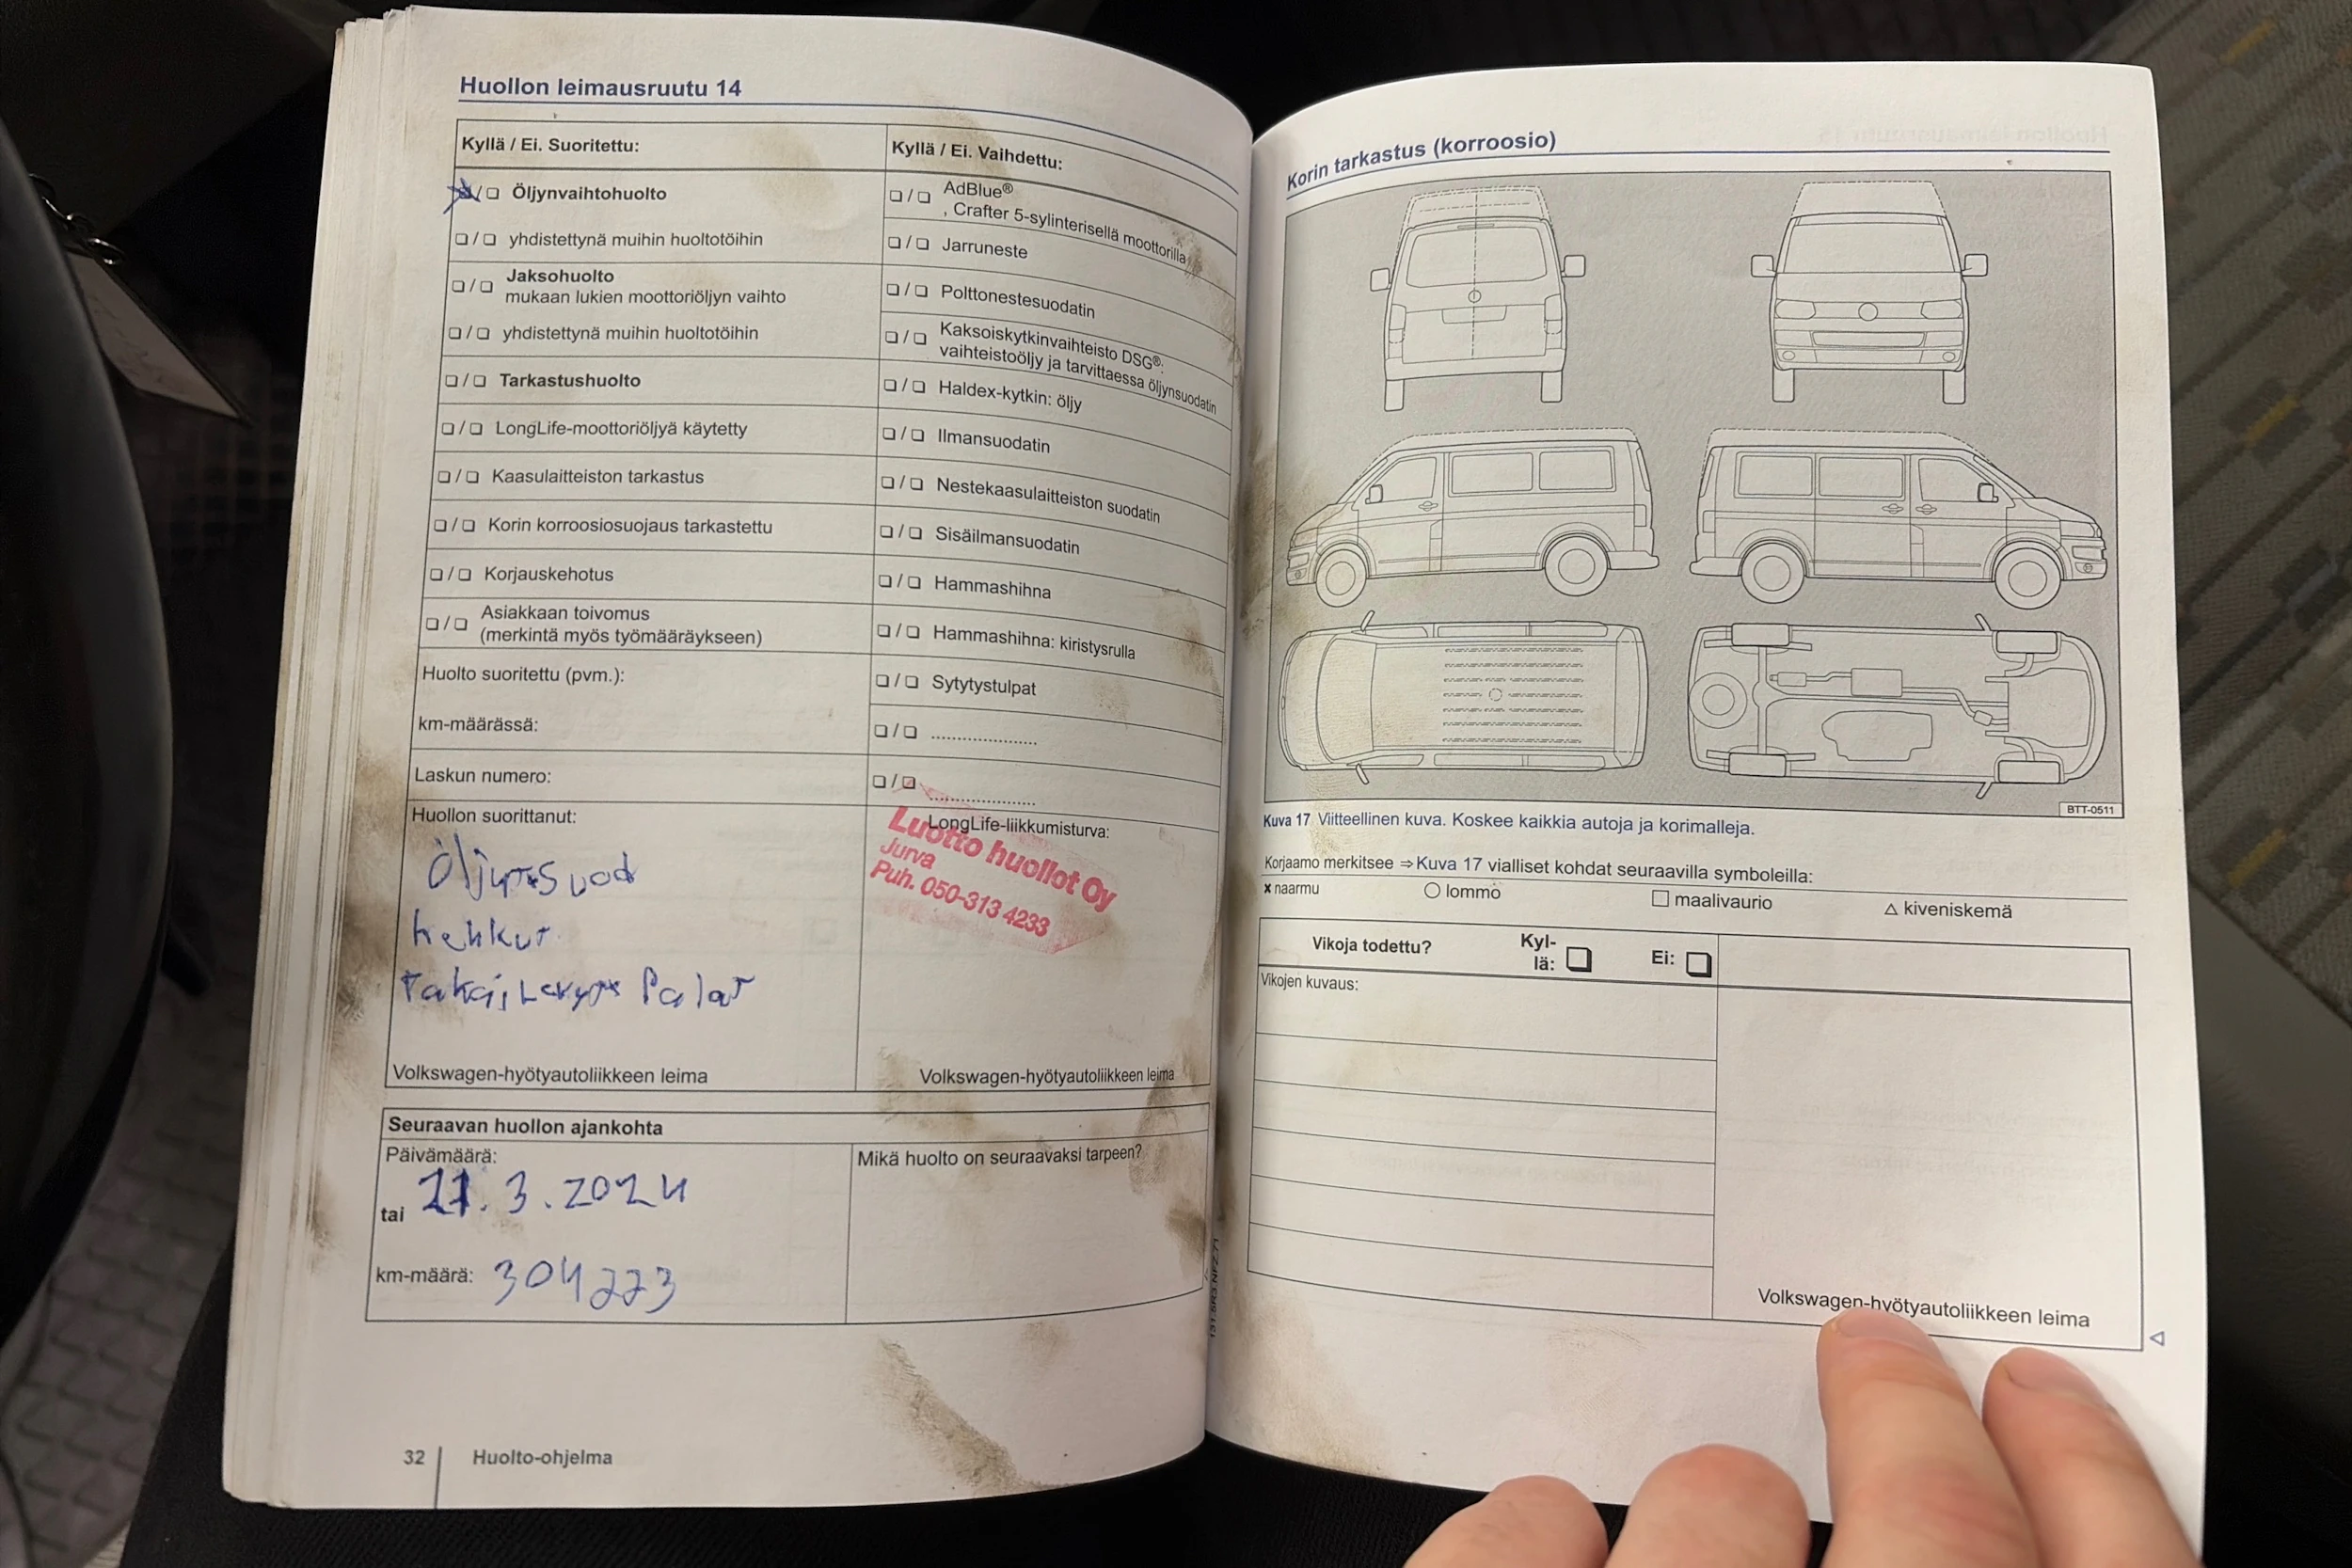 Huollon leimausruutu 14
Kyllä / Ei. Suoritettu:
Öljynvaihtohuolto
yhdistettynä muihin huoltotöihin
Jaksohuolto
mukaan lukien moottoriöljyn vaihto
yhdistettynä muihin huoltotöihin
Tarkastushuolto
LongLife-moottoriöljyä käytetty
Kaasulaitteiston tarkastus
Korin korroosiosuojaus tarkastettu
Korjauskehotus
Asiakkaan toivomus
(merkintä myös työmääräykseen)
Huolto suoritettu (pvm.):
km-määrässä:
Laskun numero:
Huollon suorittanut:
hehkut
Palat
Volkswagen-hyötyautoliikkeen leima
Kyllä / Ei. Vaihdettu:
AdBlue®
, Crafter 5-sylinterisellä moottorilla
Jarruneste
Polttonestesuodatin
Kaksoiskytkinvaihteisto DSG®:
vaihteistoöljy ja tarvittaessa öljynsuodatin
Haldex-kytkin: öljy
Ilmansuodatin
Nestekaasulaitteiston suodatin
Sisäilmansuodatin
Hammashihna
Hammashihna: kiristysrulla
Sytytystulpat
LongLife-liikkumisturva:
Luotto huollot Oy
Jurva
Puh. 050-313 4233
Volkswagen-hyötyautoliikkeen leima
Seuraavan huollon ajankohta
Päivämäärä:
tai 21.3.2024
km-määrä: 304223
Mikä huolto on seuraavaksi tarpeen?
32 Huolto-ohjelma
Korin tarkastus (korroosio)
BTT-0511
Kuva 17 Viitteellinen kuva. Koskee kaikkia autoja ja korimalleja.
Korjaamo merkitsee ⇒ Kuva 17 vialliset kohdat seuraavilla symboleilla:
x naarmu ○ lommo □ maalivaurio △ kiveniskemä
Vikoja todettu? Kyl-
lä: Ei:
Vikojen kuvaus:
Volkswagen-hyötyautoliikkeen leima